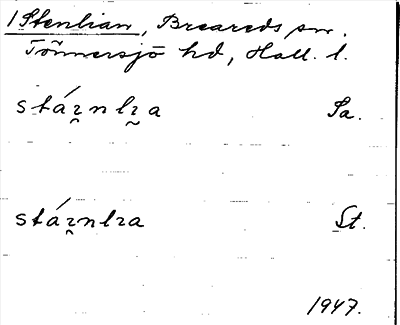 1 Stenlian, Breareds sn.
Tönnersjö hd, Hall. l.
stá̰rnlra Sa.
stá̰rnlra St.
1947.